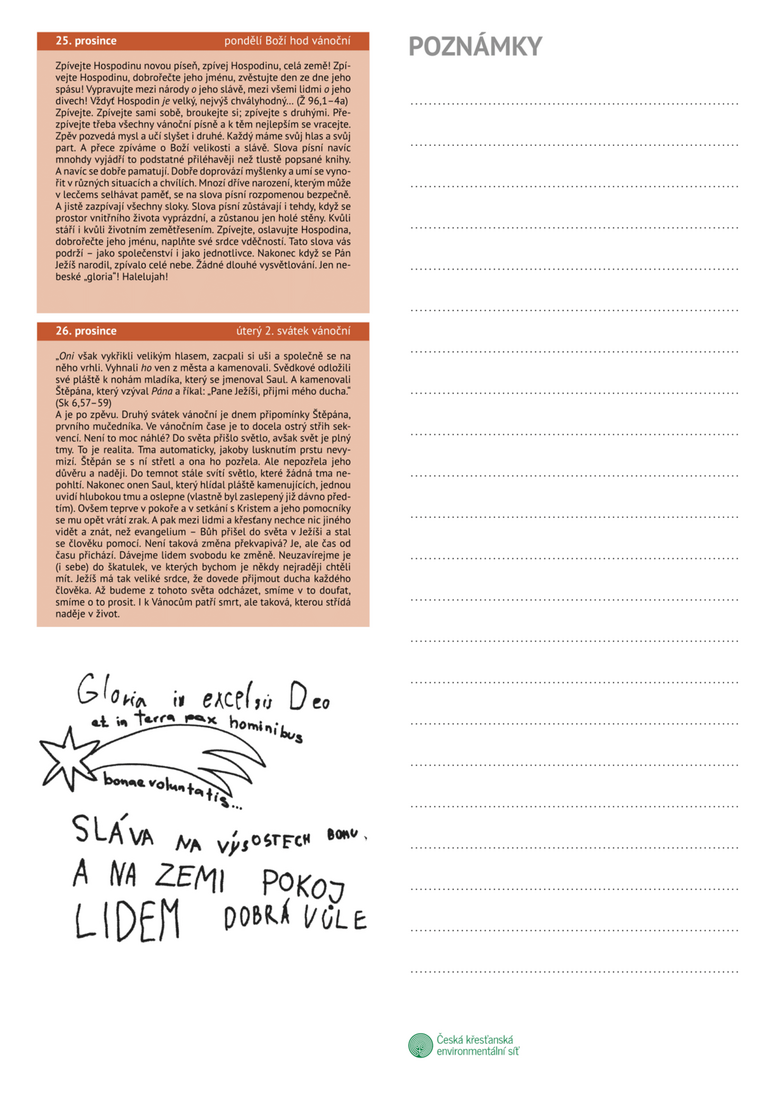 25. prosince pondělí Boží hod vánoční
Zpívejte Hospodinu novou píseň, zpívej Hospodinu, celá země! Zpí-
vejte Hospodinu, dobrořečte jeho jménu, zvěstujte den ze dne jeho
spásu! Vypravujte mezi národy o jeho slávě, mezi všemi lidmi o jeho
divech! Vždyť Hospodin je velký, nejvýš chvályhodný… (Ž 96,1–4a)
Zpívejte. Zpívejte sami sobě, broukejte si; zpívejte s druhými. Pře-
zpívejte třeba všechny vánoční písně a k těm nejlepším se vracejte.
Zpěv pozvedá mysl a učí slyšet i druhé. Každý máme svůj hlas a svůj
part. A přece zpíváme o Boží velikosti a slávě. Slova písní navíc
mnohdy vyjádří to podstatné přiléhavěji než tlustě popsané knihy.
A navíc se dobře pamatují. Dobře doprovází myšlenky a umí se vyno-
řit v různých situacích a chvílích. Mnozí dříve narození, kterým může
v lecčems selhávat paměť, se na slova písní rozpomenou bezpečně.
A jistě zazpívají všechny sloky. Slova písní zůstávají i tehdy, když se
prostor vnitřního života vyprázdní, a zůstanou jen holé stěny. Kvůli
stáří i kvůli životním zemětřesením. Zpívejte, oslavujte Hospodina,
dobrořečte jeho jménu, naplňte své srdce vděčností. Tato slova vás
podrží – jako společenství i jako jednotlivce. Nakonec když se Pán
Ježíš narodil, zpívalo celé nebe. Žádné dlouhé vysvětlování. Jen ne-
beské „gloria“! Halelujah!
26. prosince úterý 2. svátek vánoční
„Oni však vykřikli velikým hlasem, zacpali si uši a společně se na
něho vrhli. Vyhnali ho ven z města a kamenovali. Svědkové odložili
své pláště k nohám mladíka, který se jmenoval Saul. A kamenovali
Štěpána, který vzýval Pána a říkal: „Pane Ježíši, přijmi mého ducha.“
(Sk 6,57–59)
A je po zpěvu. Druhý svátek vánoční je dnem připomínky Štěpána,
prvního mučedníka. Ve vánočním čase je to docela ostrý střih sek-
vencí. Není to moc náhlé? Do světa přišlo světlo, avšak svět je plný
tmy. To je realita. Tma automaticky, jakoby lusknutím prstu nevy-
mizí. Štěpán se s ní střetl a ona ho pozřela. Ale nepozřela jeho
důvěru a naději. Do temnot stále svítí světlo, které žádná tma ne-
pohltí. Nakonec onen Saul, který hlídal pláště kamenujících, jednou
uvidí hlubokou tmu a oslepne (vlastně byl zaslepený již dávno před-
tím). Ovšem teprve v pokoře a v setkání s Kristem a jeho pomocníky
se mu opět vrátí zrak. A pak mezi lidmi a křesťany nechce nic jiného
vidět a znát, než evangelium – Bůh přišel do světa v Ježíši a stal
se člověku pomocí. Není taková změna překvapivá? Je, ale čas od
času přichází. Dávejme lidem svobodu ke změně. Neuzavírejme je
(i sebe) do škatulek, ve kterých bychom je někdy nejraději chtěli
mít. Ježíš má tak veliké srdce, že dovede přijmout ducha každého
člověka. Až budeme z tohoto světa odcházet, smíme v to doufat,
smíme o to prosit. I k Vánocům patří smrt, ale taková, kterou střídá
naděje v život.
Gloria in excelsis Deo
et in terra pax hominibus
bonae voluntatis...
SLÁVA NA VÝSOSTECH BOHU.
A NA ZEMI POKOJ
LIDEM DOBRÁ VŮLE
POZNÁMKY
Česká křesťanská
environmentální síť